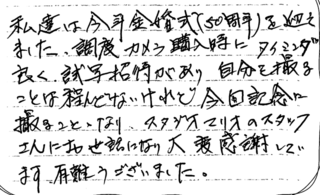 私達は今年金婚式(50周年)を迎え
ました。調度カメラ購入時にタイミング
良く、試写招待があり自分を撮る
ことは殆んどないけれど今回記念に
撮ることとなり、スタジオマリオのスタッフ
さんにお世話になり大変感謝してい
ます。有難うございました。